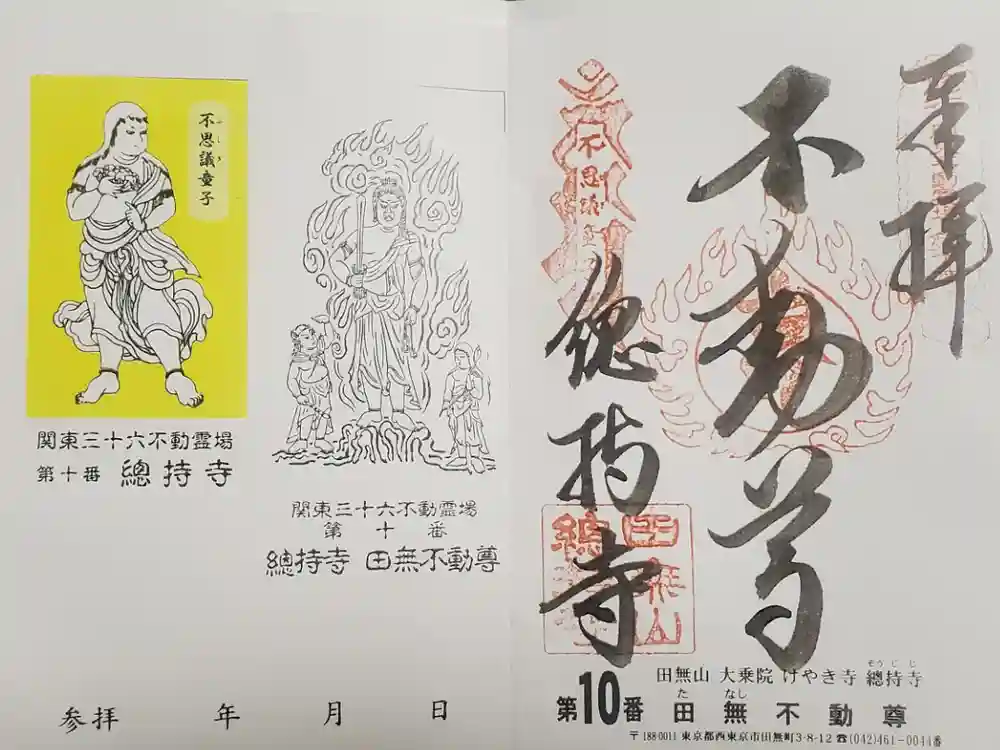 不思議童子
ふしぎ
関東三十六不動霊場
第十番 總持寺
関東三十六不動霊場
第十番
總持寺 田無不動尊
参拝 年 月 日
奉拝
不動尊
總持寺
不思議童
田無山
總
田無山 大乗院 けやき寺 總持寺
そうじじ
第10番 田無不動尊
たなし
〒188-0011 東京都西東京市田無町3-8-12 ☎(042)461-0044番